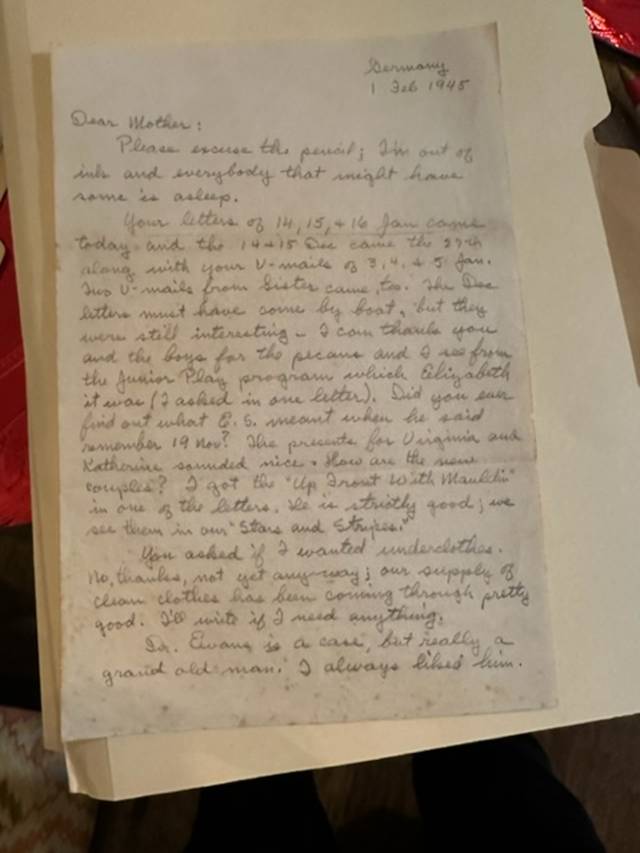 Germany
1 Feb 1945
Dear Mother:
Please excuse the pencil; I'm out of
ink and everybody that might have
some is asleep.
Your letters of 14, 15, + 16 Jan came
today and the 14 + 15 Dec came the 29th
along with your V-mails of 3, 4, + 5 Jan.
Two V-mails from Sister came, too. The Dec
letters must have come by boat, but they
were still interesting - I can thank you
and the boys for the pecans and I see from
the Junior Play program which Elizabeth
it was (I asked in one letter). Did you ever
find out what E. S. meant when he said
remember 19 Nov? The presents for Virginia and
Katherine sounded nice. How are the new
couples? I got the "Up Front With Mauldin"
in one of the letters. He is strictly good; we
see them in our "Stars and Stripes."
You asked if I wanted underclothes.
No, thanks, not yet any-way; our supply of
clean clothes has been coming through pretty
good. I'll write if I need anything.
Dr. Evans is a case, but really a
grand old man. I always liked him.